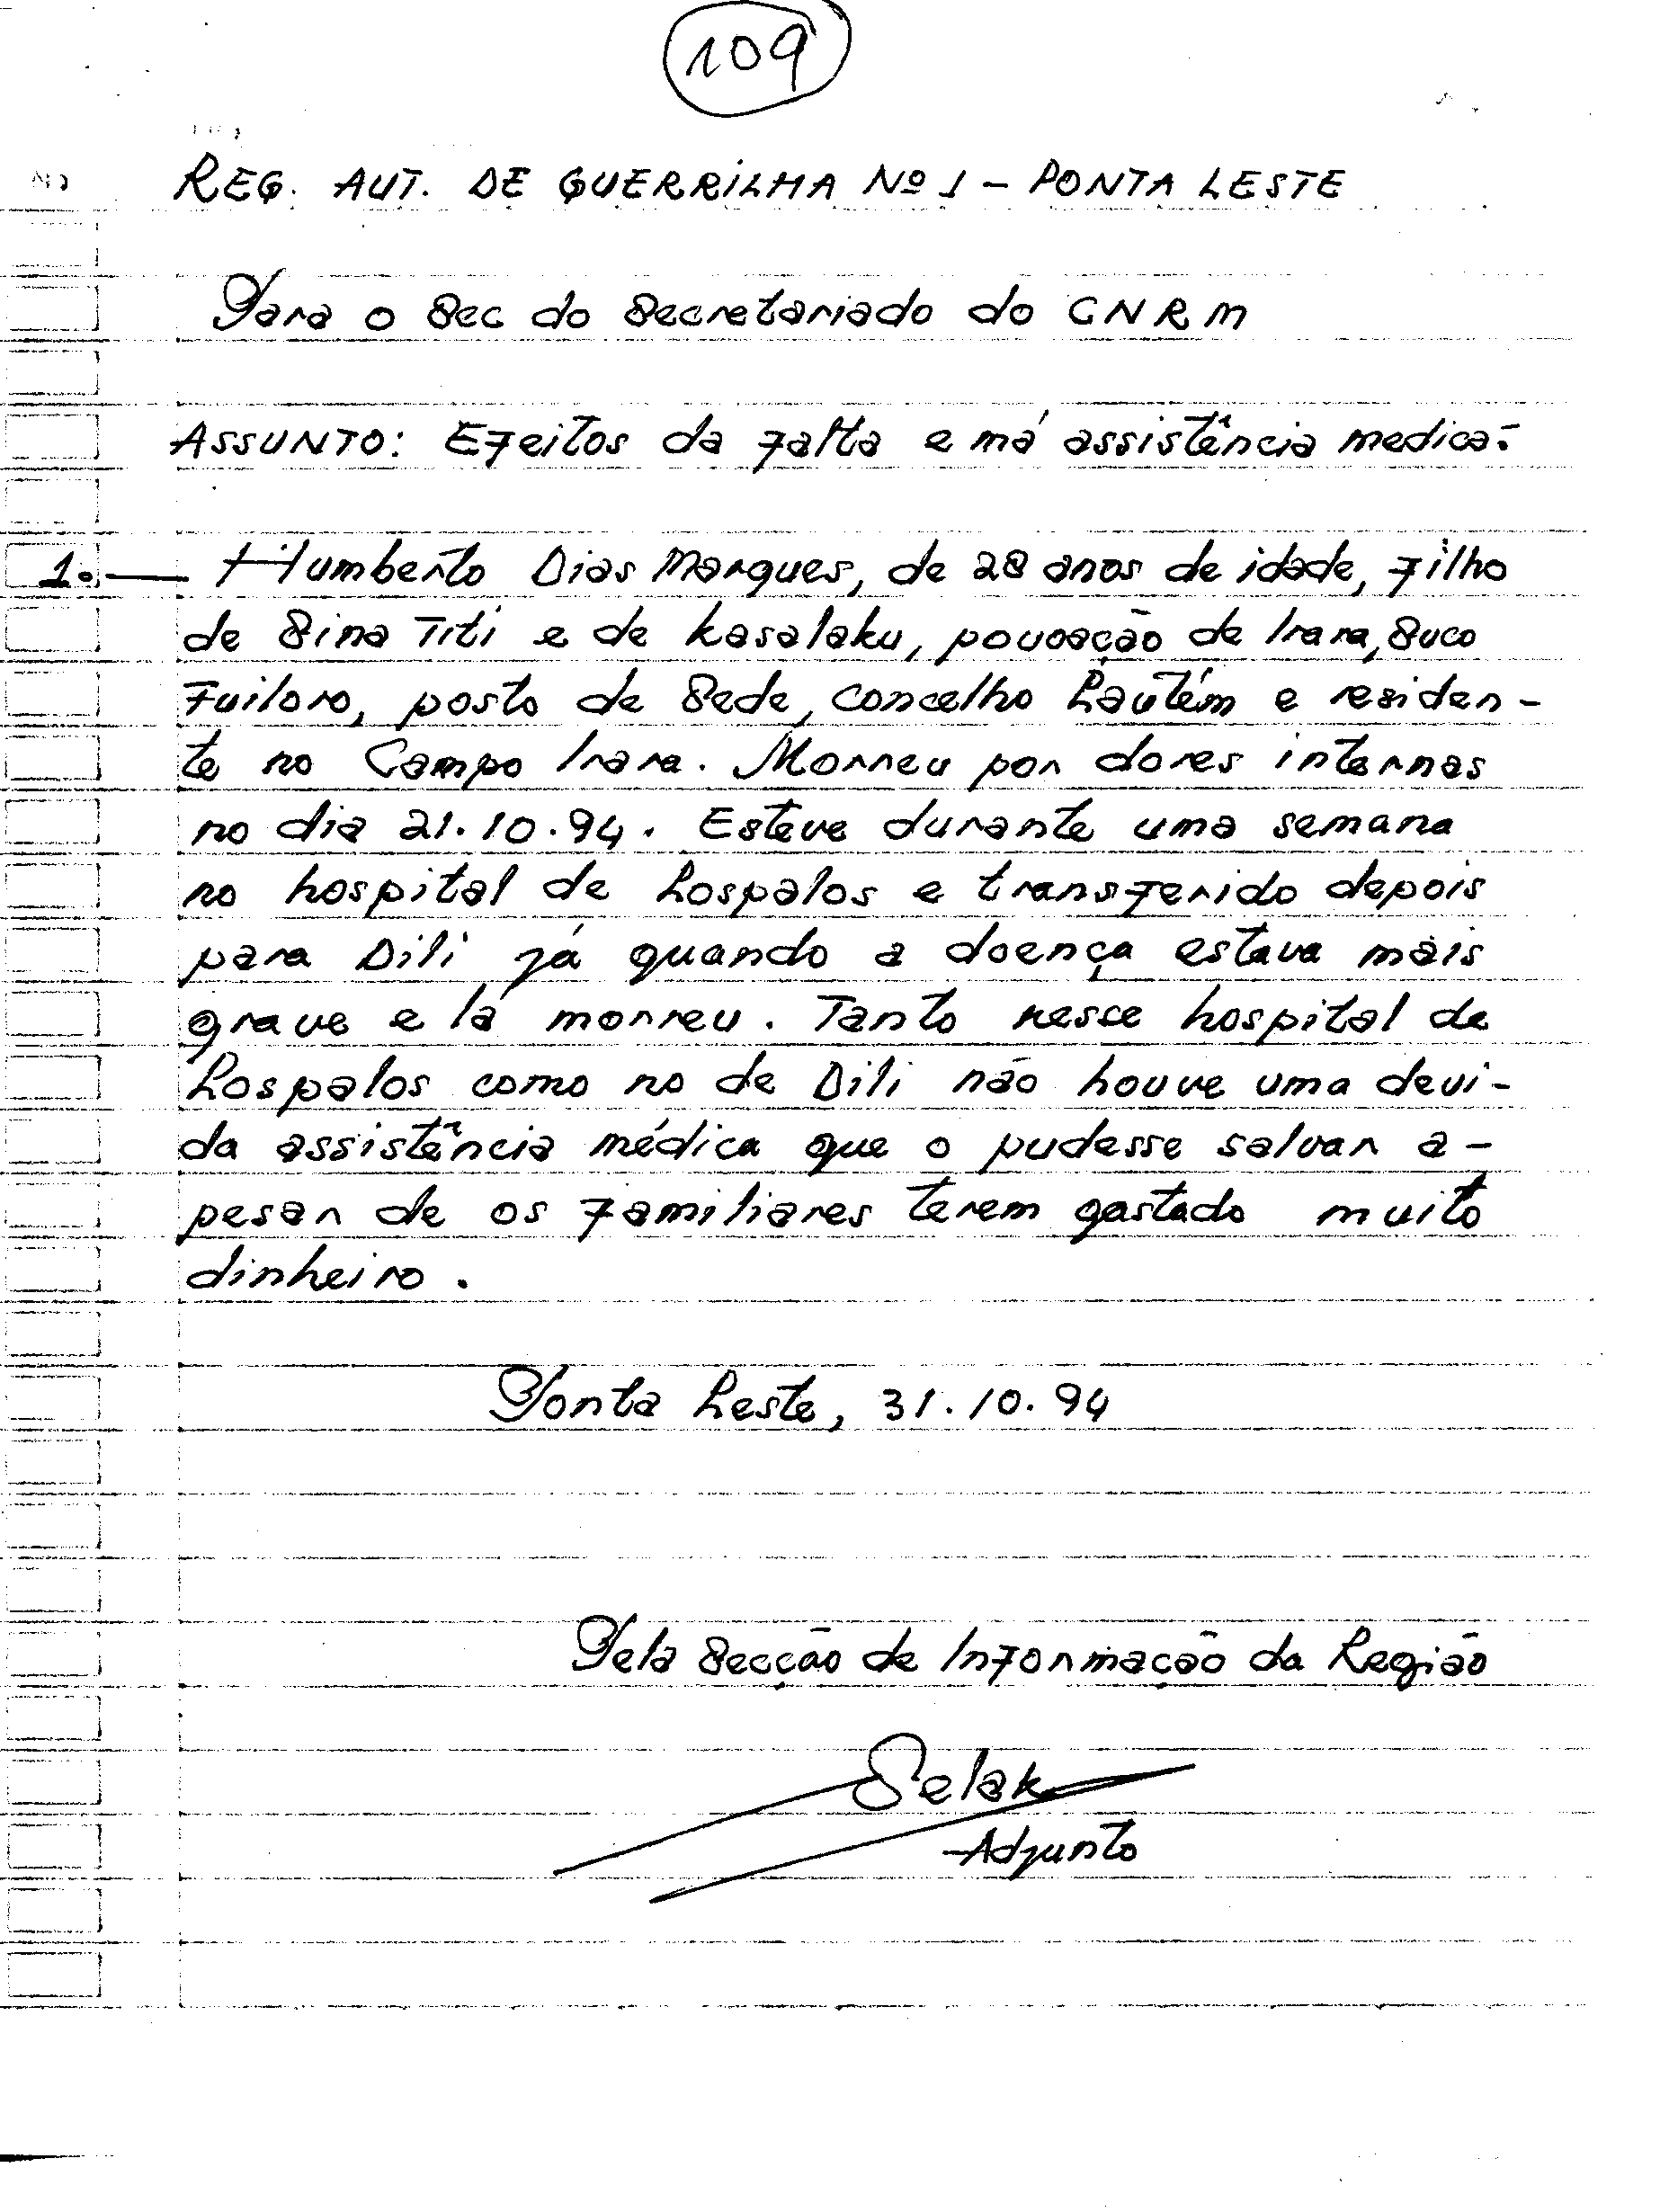 109
REG. AUT. DE GUERRILHA Nº 1 - PONTA LESTE
Para o Sec do Secretariado do CNRM
ASSUNTO: Efeitos da falta e má assistência medica.
1. — Humberto Dias Marques, de 28 anos de idade, filho
de Sina Titi e de Kasalaku, povoação de Irara, Suco
Fuiloro, posto de Sede, concelho Lautém e residen-
te no Campo Irara. Morreu por dores internas
no dia 21.10.94. Esteve durante uma semana
no hospital de Lospalos e transferido depois
para Dili já quando a doença estava mais
grave e lá morreu. Tanto nesse hospital de
Lospalos como no de Dili não houve uma devi-
da assistência médica que o pudesse salvar a-
pesar de os familiares terem gastado muito
dinheiro.
Ponta Leste, 31.10.94
Pela Secção de Informação da Região
Selak
Adjunto